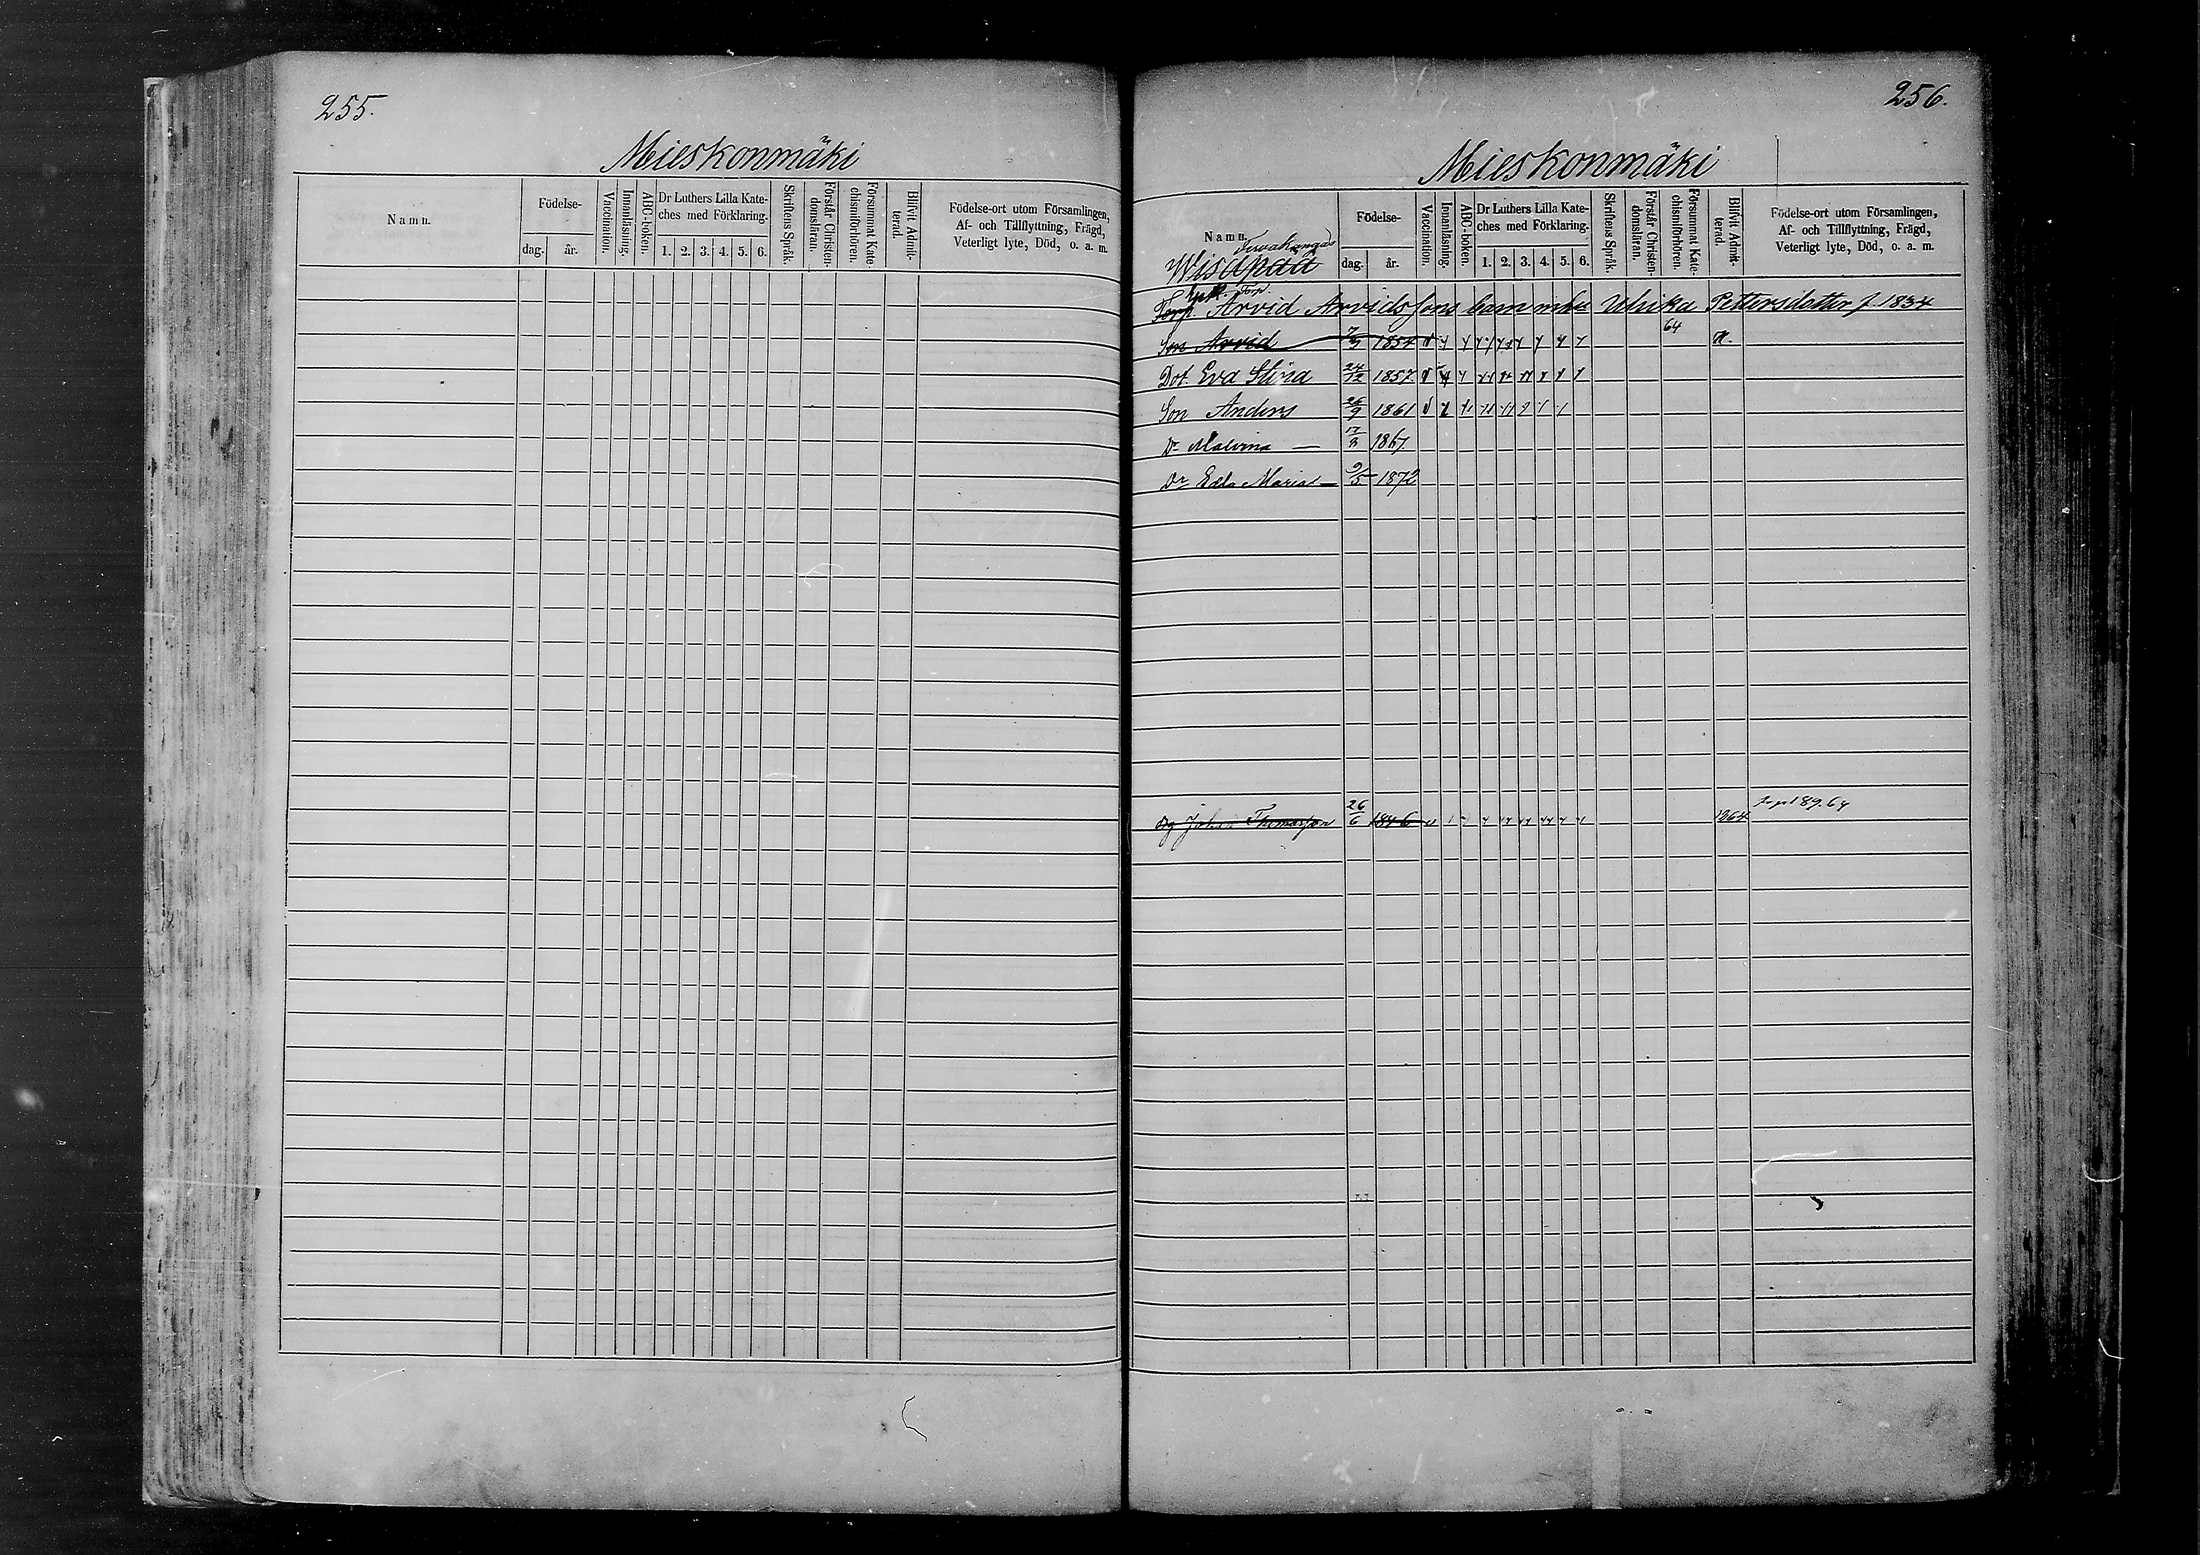 255.
Mieskonmäki
Namn.
Födelse-
dag. år.
Vaccination.
Innanläsning.
ABC-boken.
Dr Luthers Lilla Kate-
ches med Förklaring.
1. 2. 3. 4. 5. 6.
Skriftens Språk.
Förstår Christen-
domsläran.
Försummat Kate-
chismiförhören.
Blifvit Admit-
terad.
Födelse-ort utom Församlingen,
Af- och Tillflyttning, Frägd,
Veterligt lyte, Död, o. a. m.
256.
Mieskonmäki
Namn.
Födelse-
dag. år.
Vaccination.
Innanläsning.
ABC-boken.
Dr Luthers Lilla Kate-
ches med Förklaring.
1. 2. 3. 4. 5. 6.
Skriftens Språk.
Förstår Christen-
domsläran.
Försummat Kate-
chismiförhören.
Blifvit Admit-
terad.
Födelse-ort utom Församlingen,
Af- och Tillflyttning, Frägd,
Veterligt lyte, Död, o. a. m.
Wisapää
Torp. Arvid Arvidssons barn Ulrika Pettersdotter f 1834
Son Arvid 1854 64
Dot. Eva Stina 24/12 1857
Son Anders 26/9 1861
Dr Malvina 17/3 1867
Dr Eda Maria 9/5 1872
Dg Johan Thomasson 26/6 1846 1864 89.64